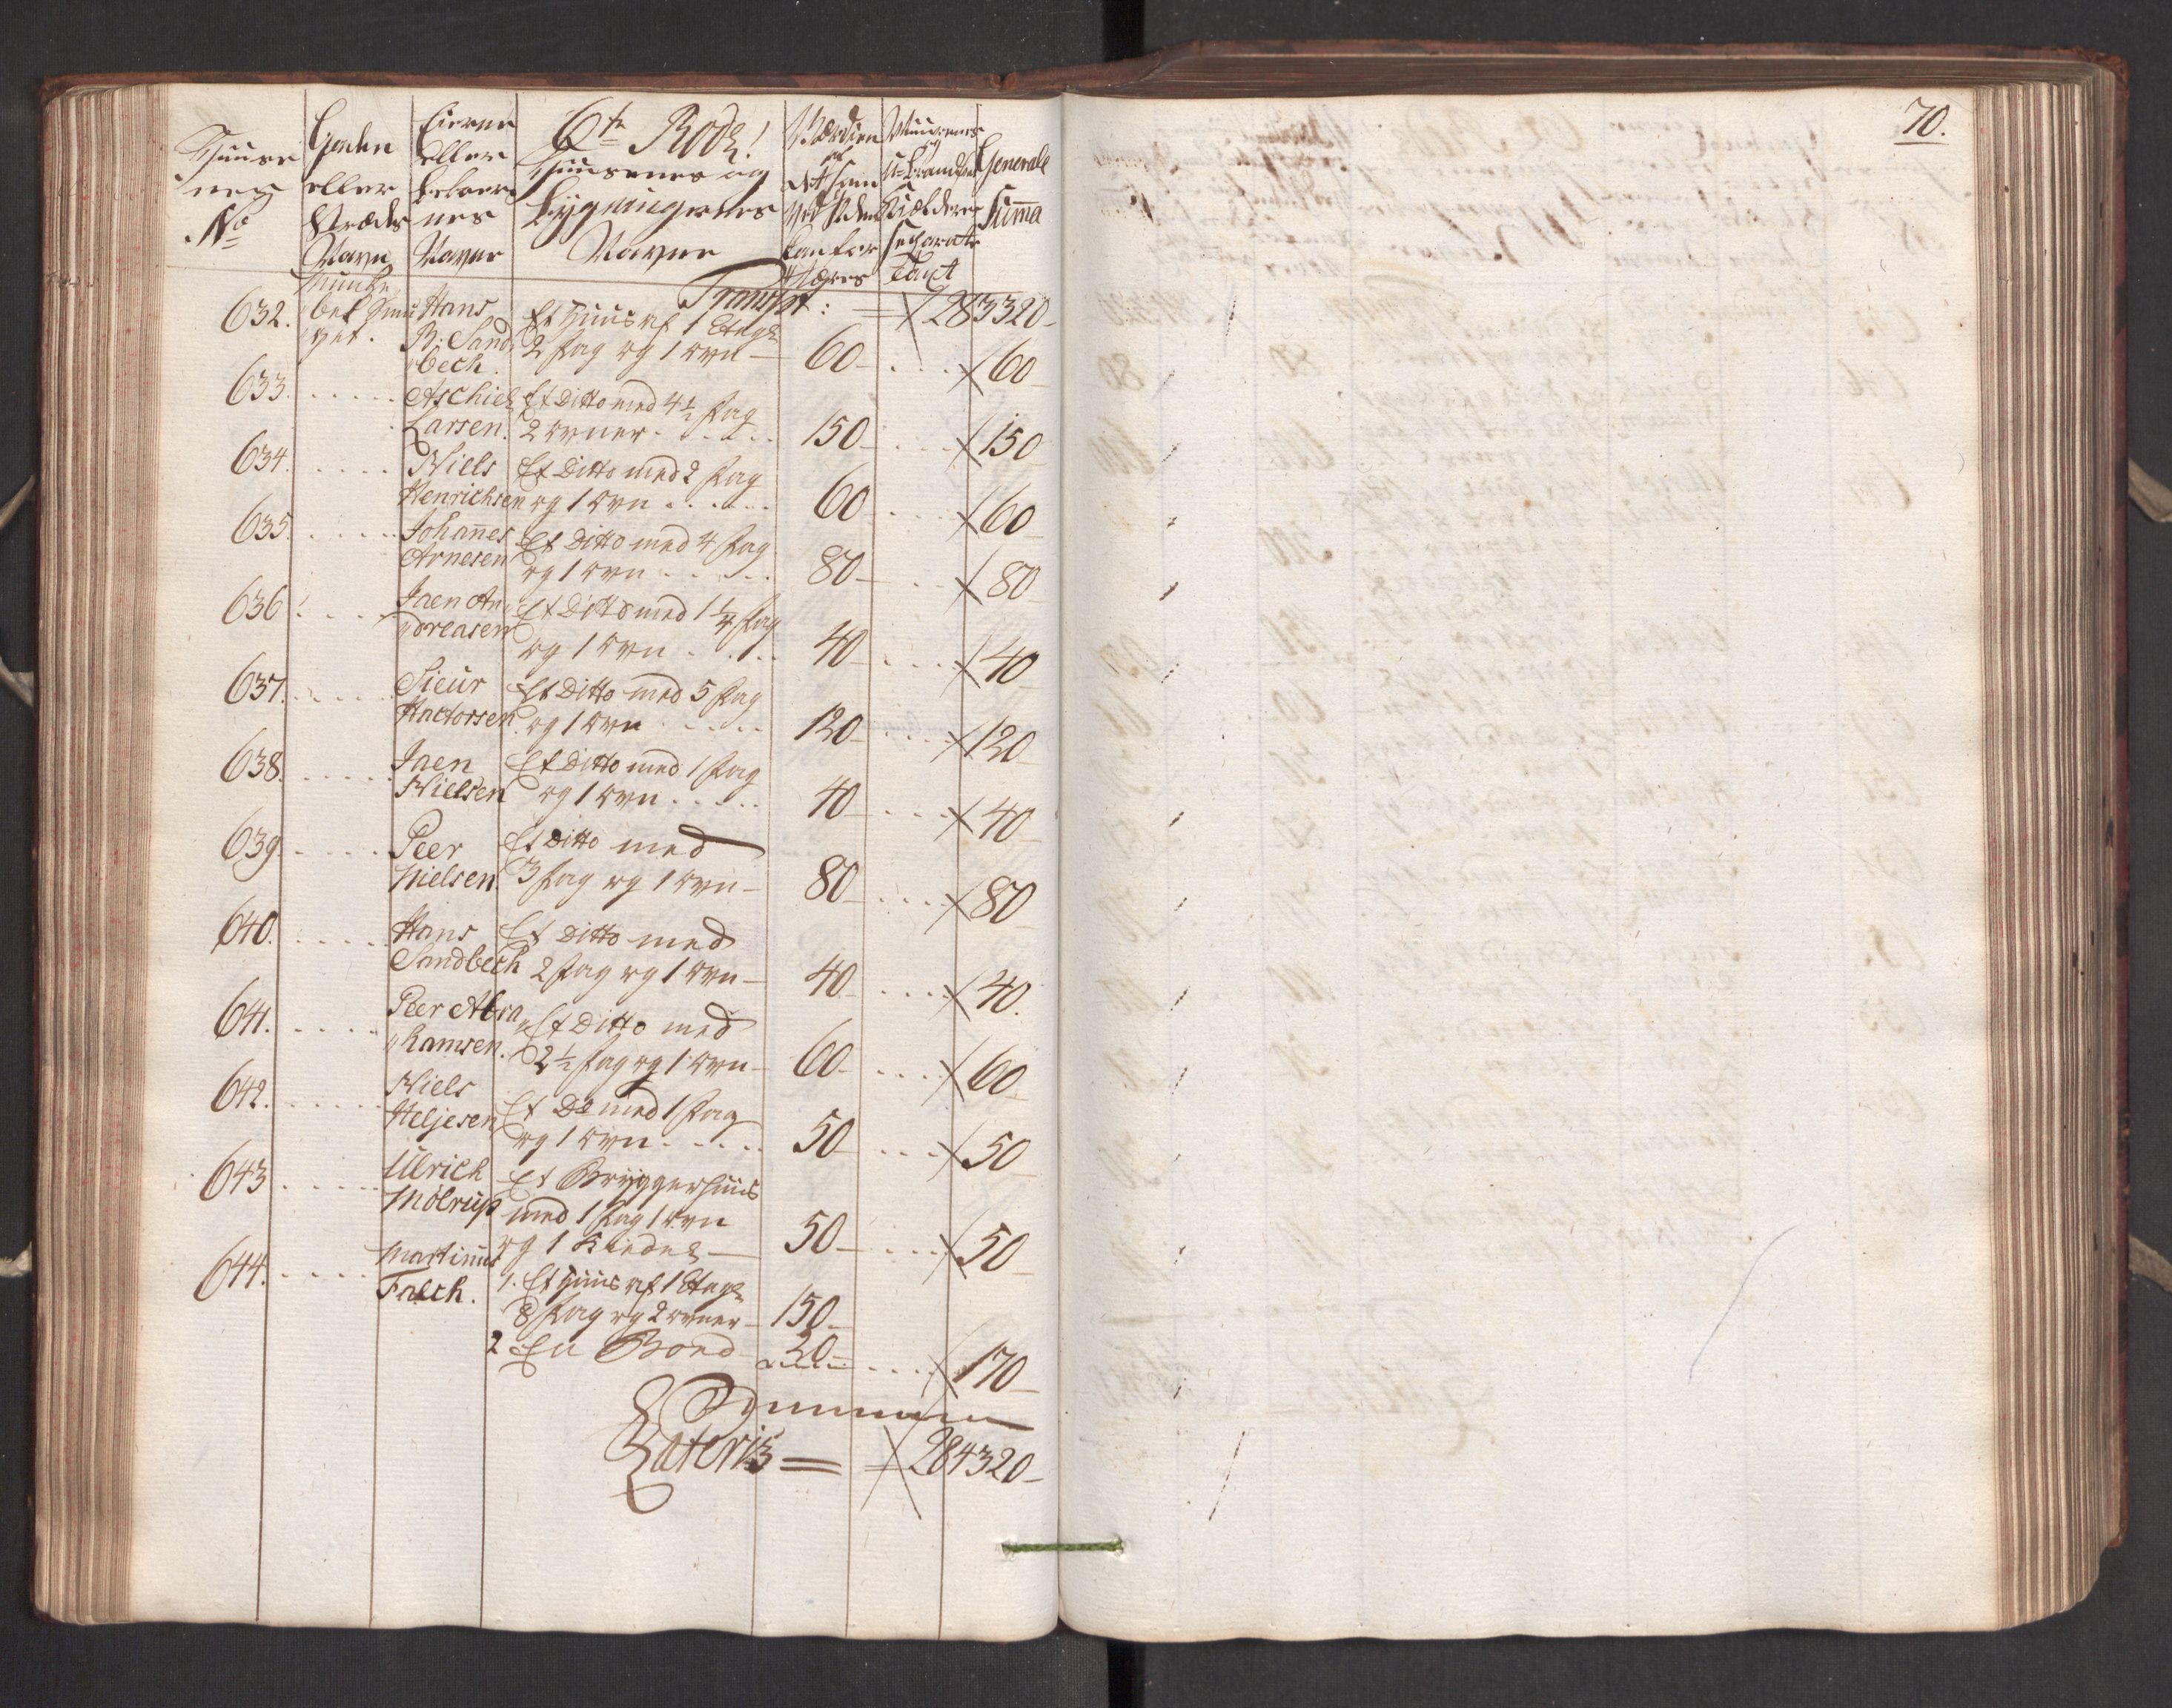 70.
Huuse
nes
No
Gaden
eller
Strædes
Navn
Eierne
eller
Beboer
nes
Navne
6te Rode!
Huusenes og
Bygningernes
Navne
Værdien
af
det som
ved Ilden
kan for
tæres
Muurenes
og
u-brandfrie
Kieldere
separate
Taxt
Generale
Summa
Transpt: = 283320
632. Hans
R: Sand
bech.
Et Huus af 1 Etage
2 fag og 1 ovn 60 . . . 60
633. . . . . . Aschiel
Larsen.
Et Ditto med 4½ fag
2 ovner . . . . . 150 . . . 150
634. . . . . . Niels
Henrichsen
Et Ditto med 2 fag
og 1 ovn . . . . . 60 . . . 60
635. . . . . . Johannes
Arnesen
Et Ditto med 4 fag
og 1 ovn . . . . . 80 . . . 80
636 . . . . Jaen An
dreasen
Et Ditto med 1¼ fag
og 1 ovn . . . . 40 . . . 40
637. . . . . . Sieur
Hactorsen
Et Ditto med 5 fag
og 1 ovn . . . . . 120 . . . 120
638. . . . . . Jaen
Nielsen
Et Ditto med 1 fag
og 1 ovn . . . . . 40 . . . 40
639. . . . . . Peer
Nielsen.
Et Ditto med
3 fag og 1 ovn 80 . . . 80
640. . . . . . Hans
Sandbech
Et Ditto med
2 fag og 1 ovn 40 . . . 40.
641. . . . . Peer Abra
hamsen.
Et Ditto med
2½ fag og 1 ovn 60 . . . 60
642. . . . . . Niels
Heljesen
Et Do med 1 fag
og 1 ovn . . . . . 50 . . . 50
643 . . . . . Ulrich
Mölrup
Et Bryggerhuus
med 1 fag 1 ovn
og 1 Kiedel 50 . . . 50
644. . . . . . Martinus
Falch.
1. Et Huus af 1 Etage
8 fag og 2 ovner 150
2 En Boed 20 . . . 170
Summa
Lateris = 284320